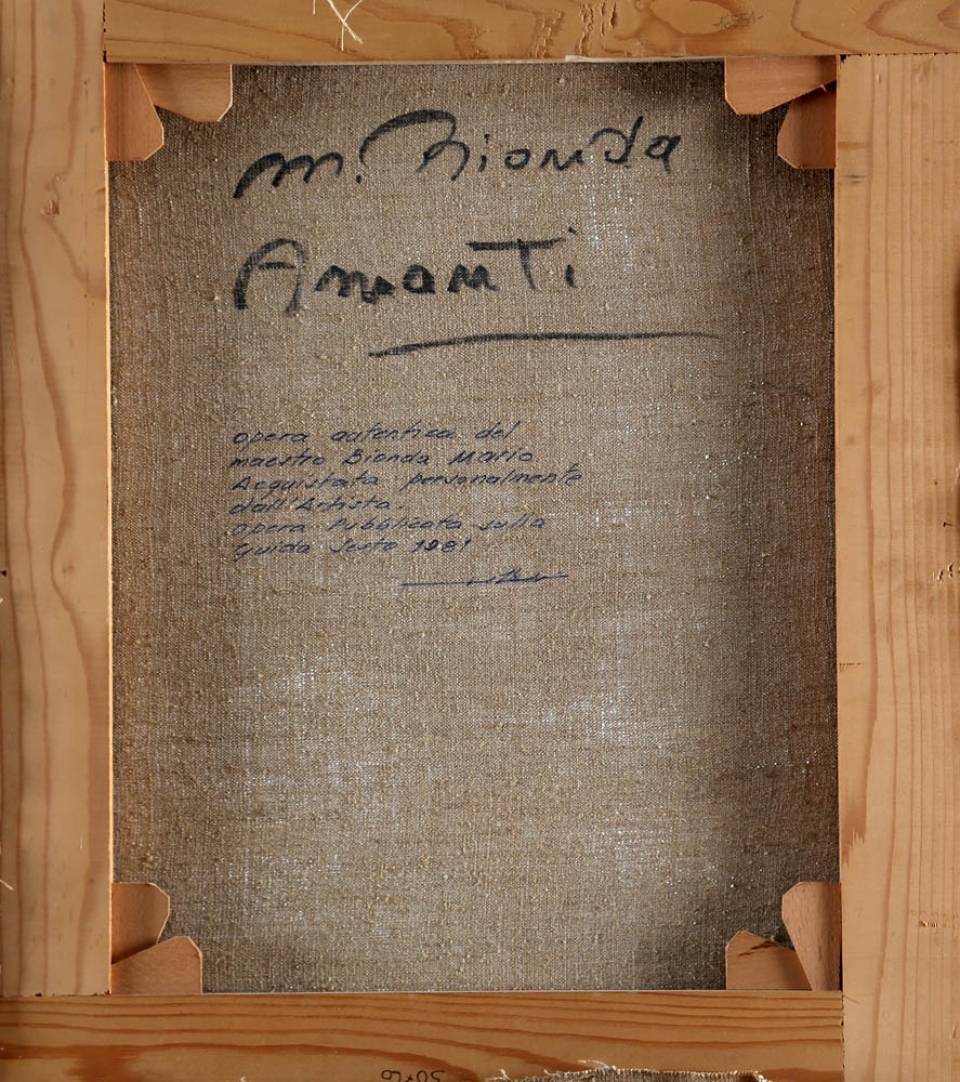 M. Bionda
Amanti
opera autentica del
maestro Bionda Mario
Acquistata personalmente
dall'Artista.
opera Pubblicata sulla
Guida Sesto 1981